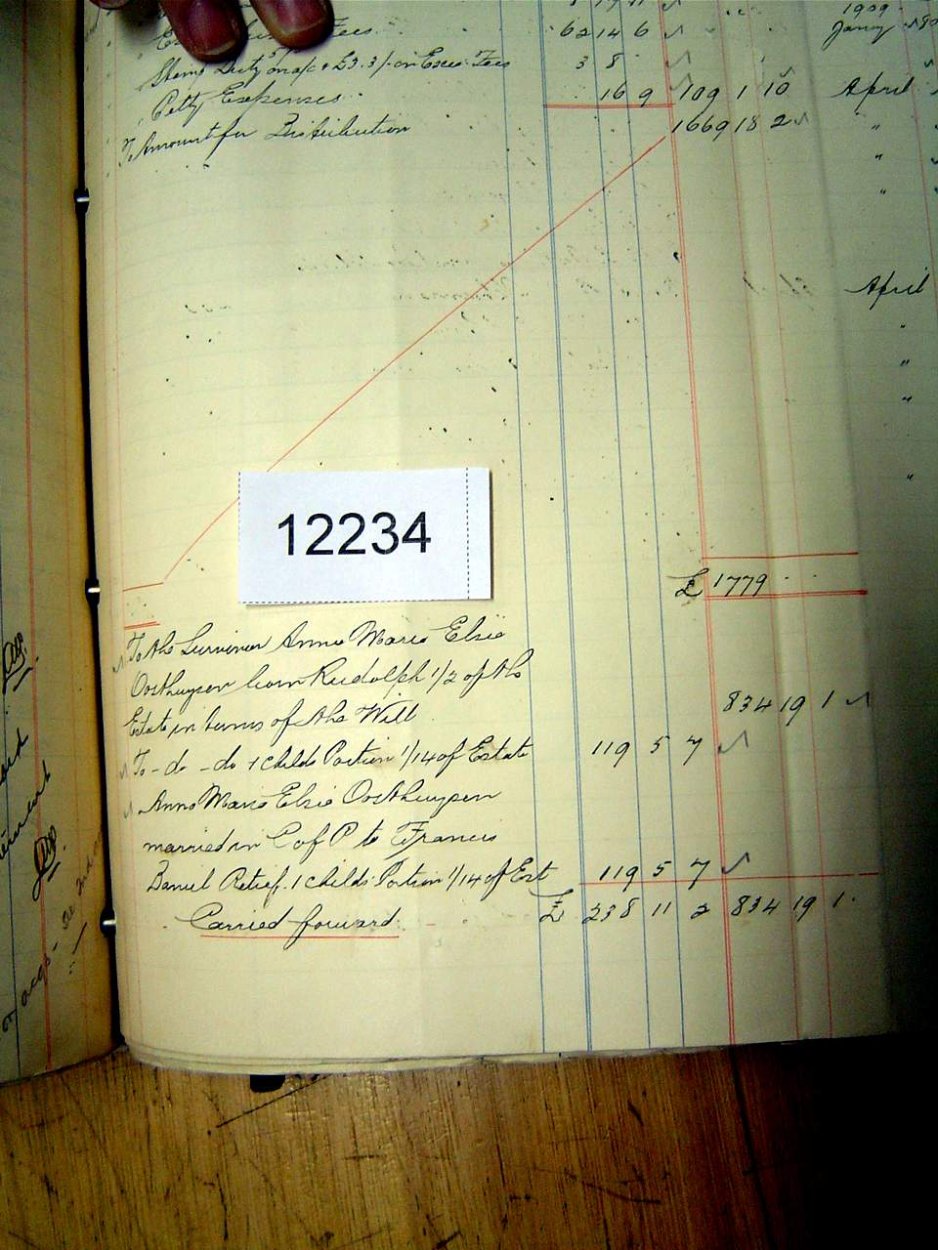 1909
Fees 62 14 6 Jany
Stamp Duty on a/c & £3.3/- on Exec. Fees 3 8
Petty Expenses 16 9 109 1 10 April
To Amount for Distribution 1669 18 2 "
"
"
April
"
"
"
12234
"
£ 1779 . .
To the Survivor Anna Maria Elsie
Oosthuysen born Rudolph 1/2 of the
Estate in terms of the Will 834 19 1
To - do - do 1 Childs Portion 1/14 of Estate 119 5 7
Anna Maria Elsie Oosthuysen
married in C of P to Francis
Daniel Retief. 1 Childs Portion 1/14 of Est 119 5 7
Carried forward £ 238 11 2 834 19 1